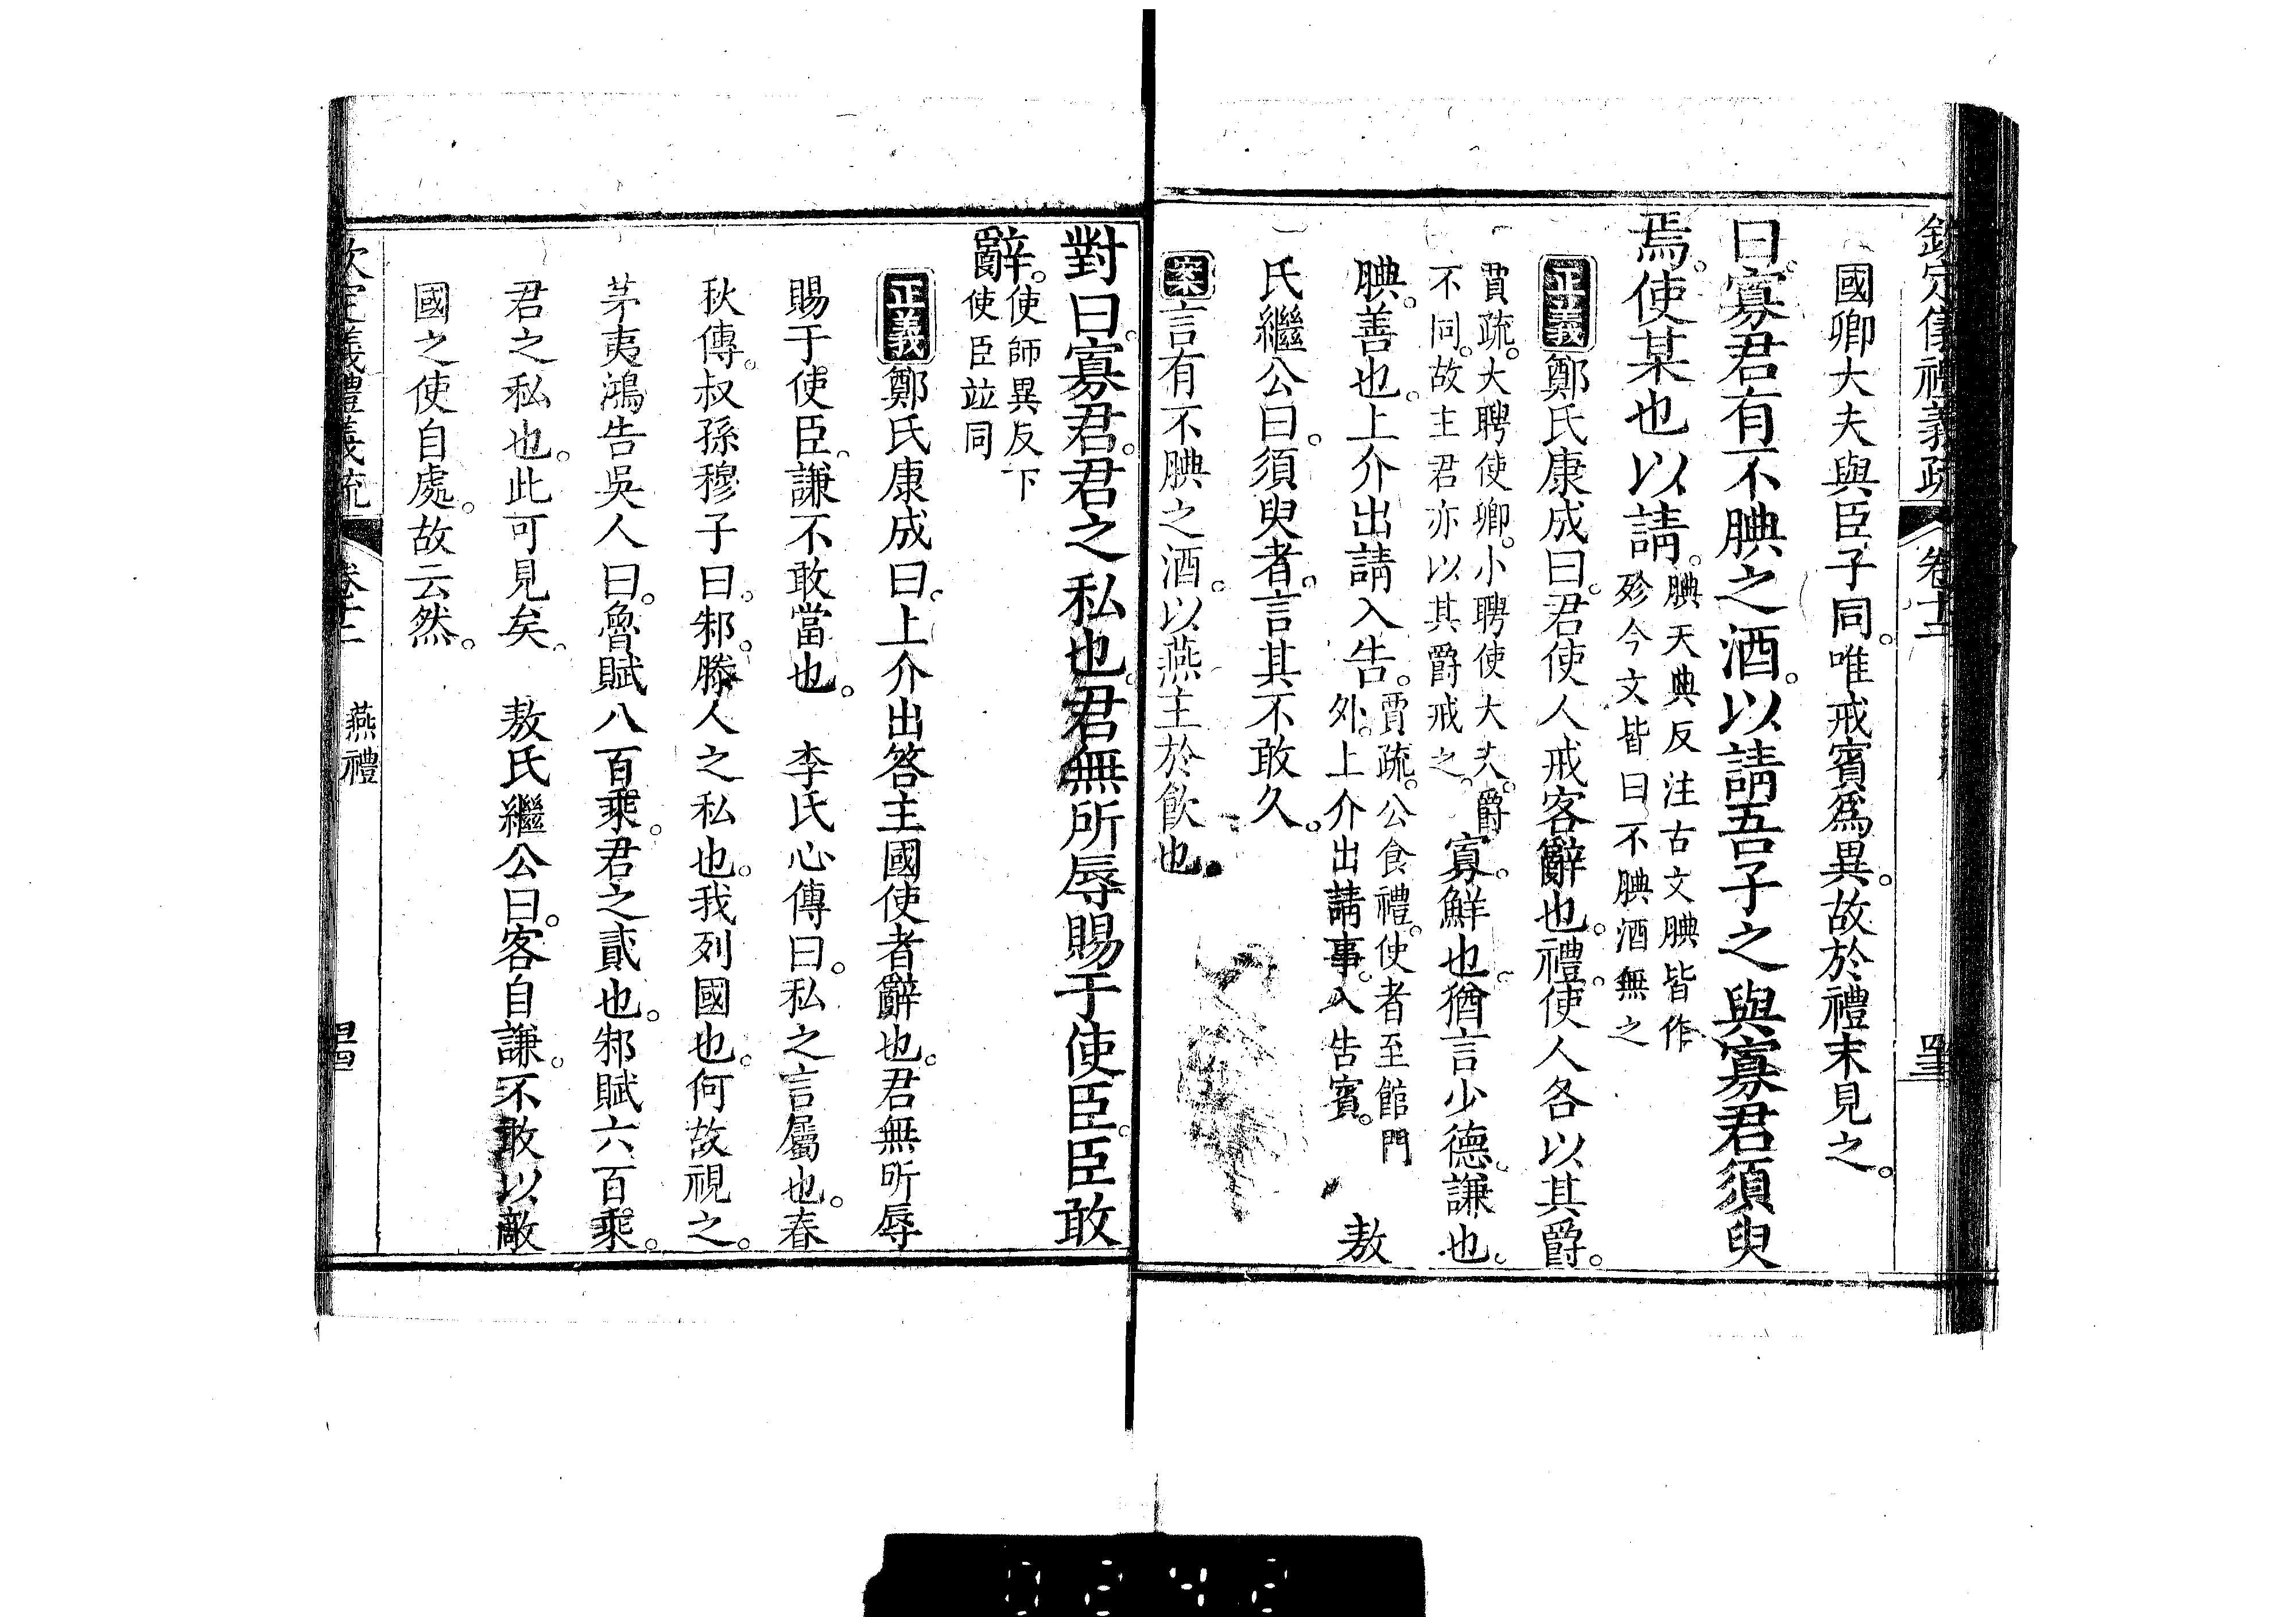 欽定儀禮義疏 卷十二
國卿大夫與臣子同。唯戒賓爲異。故於禮末見之。
曰。寡君有不腆之酒。以請吾子之與寡君須臾
焉。使某也以請。腆天典反注古文腆皆作
殄今文皆曰不腆酒無之
正義鄭氏康成曰。君使人戒客辭也。禮。使人各以其爵。
賈疏。大聘使卿。小聘使大夫。爵
不同。故主君亦以其爵戒之。
寡。鮮也。猶言少德。謙也。
腆。善也。上介出請入告。賈疏。公食禮。使者至館門
外。上介出請事。入告賓。
敖
氏繼公曰。須臾者。言其不敢久。
案言有不腆之酒。以燕主於飲也。
對曰。寡君。君之私也。君無所辱賜于使臣。臣敢
辭。使師異反下
使臣竝同
正義鄭氏康成曰。上介出答主國使者辭也。君無所辱
賜于使臣。謙不敢當也。 李氏心傳曰。私之言屬也。春
秋傳。叔孫穆子曰。邾。滕人之私也。我列國也。何故視之。
茅夷鴻告吳人曰。魯賦八百乘。君之貳也。邾賦六百乘。
君之私也。此可見矣。 敖氏繼公曰。客自謙。不敢以敵
國之使自處。故云然。
欽定義禮義疏 卷十二 燕禮
0242